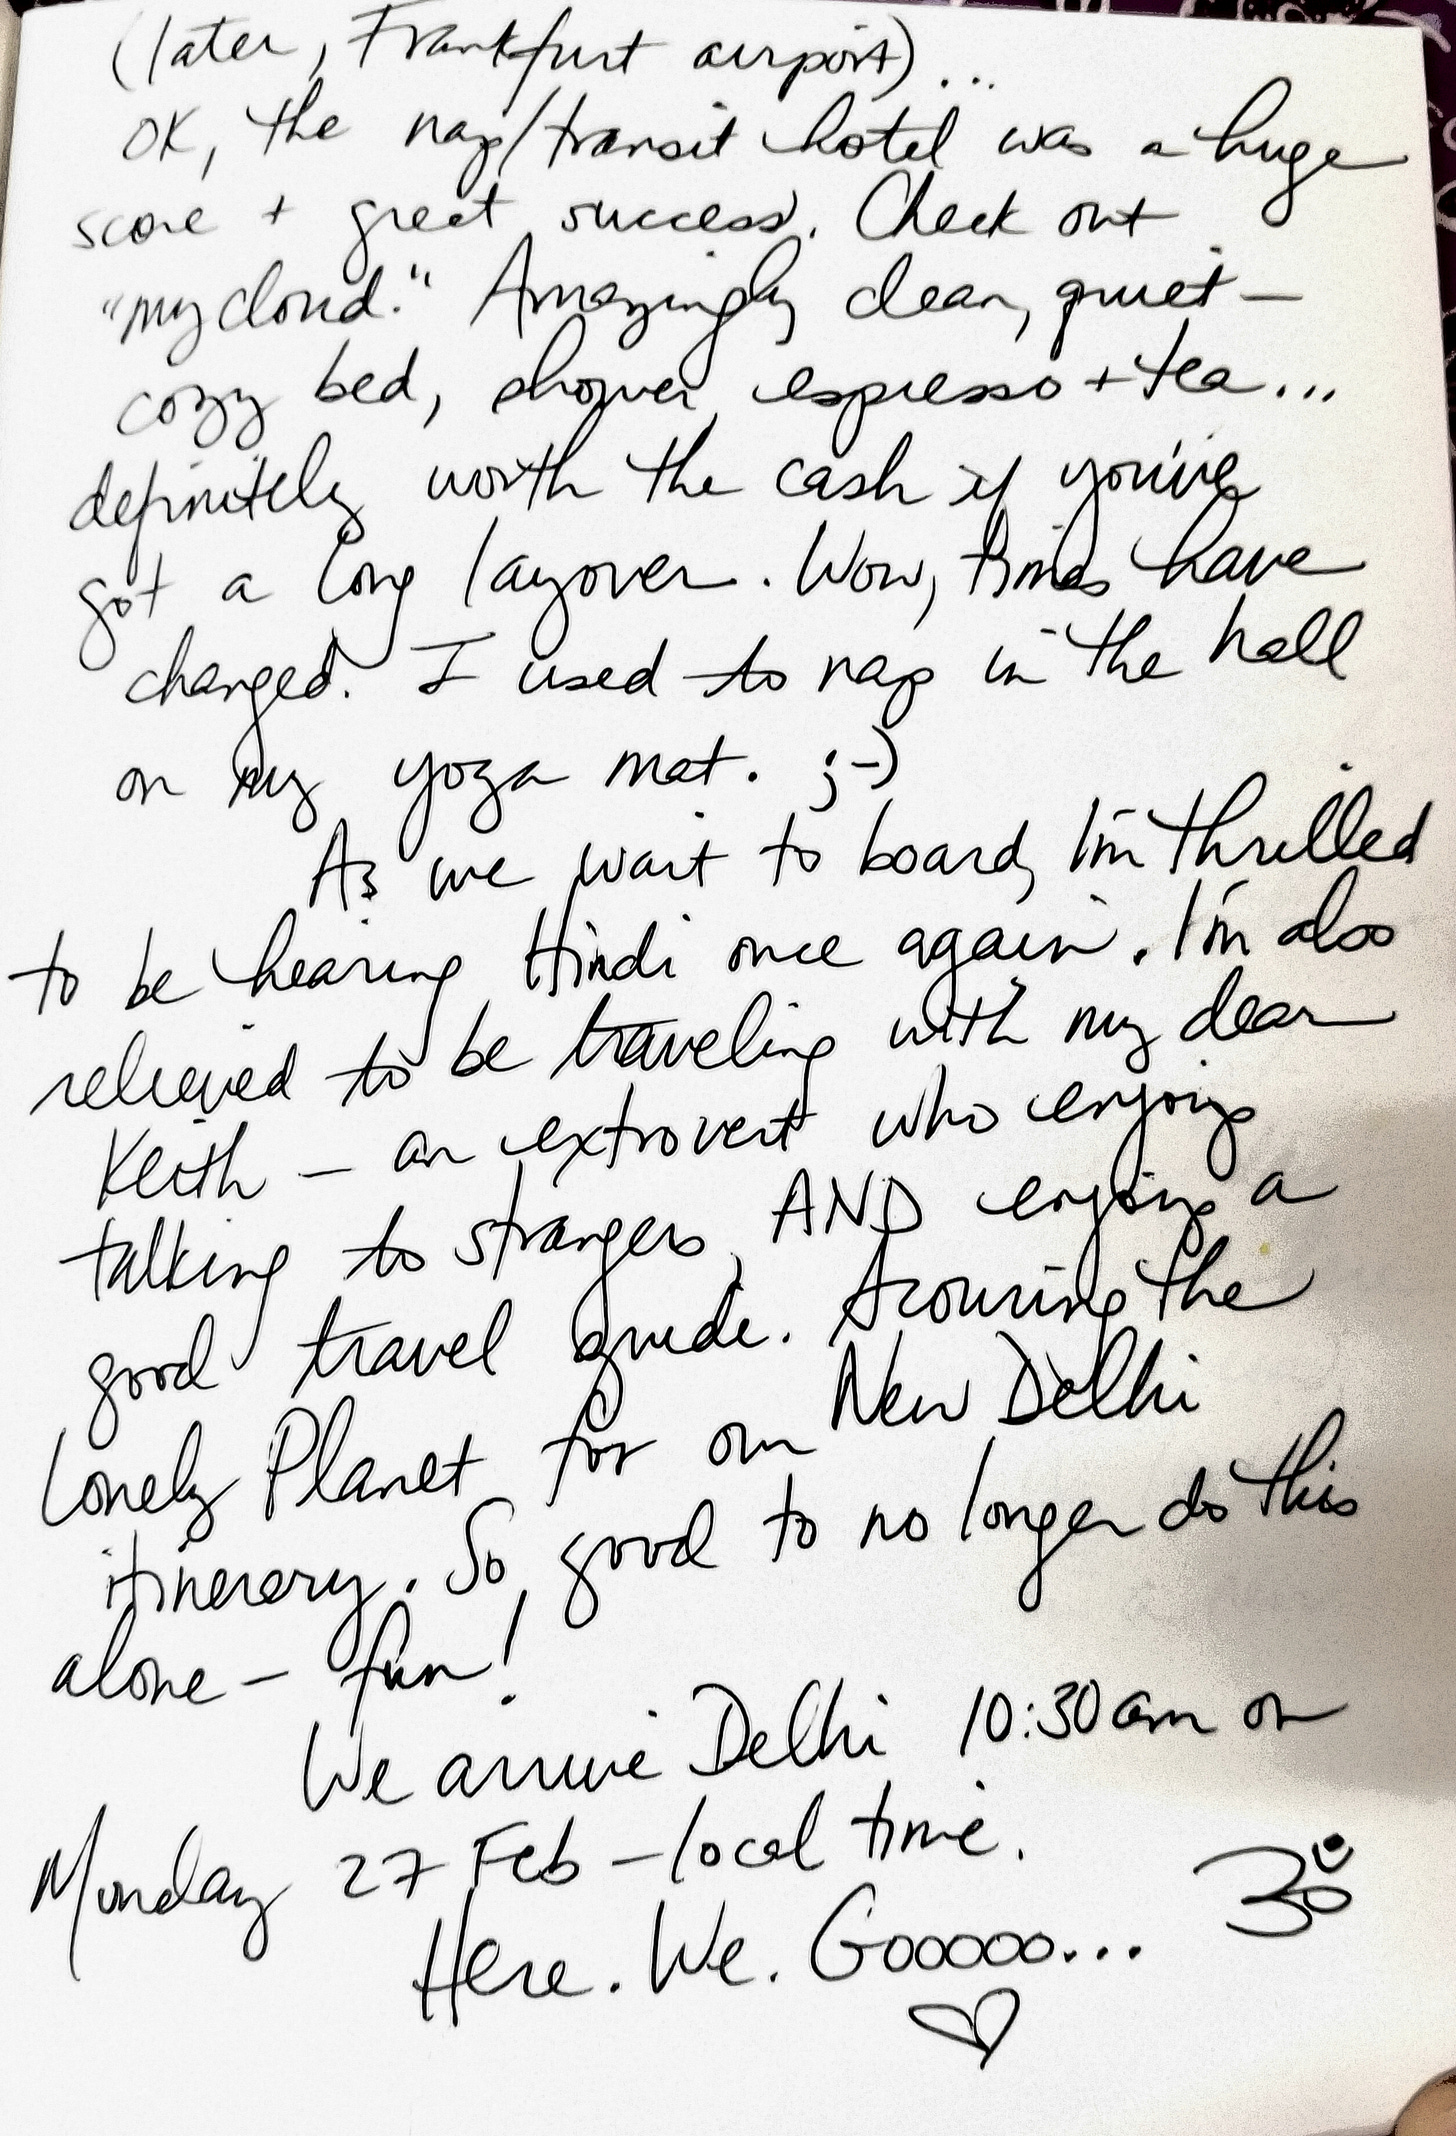 (later, Frankfurt airport)...
OK, the nap/transit hotel was a huge
score + great success. Check out
"my cloud." Amazingly clean, quiet —
cozy bed, shower, espresso + tea...
definitely worth the cash if you've
got a long layover. Wow, times have
changed. I used to nap in the hall
on my yoga mat. ;-)
As we wait to board, I'm thrilled
to be hearing Hindi once again. I'm also
relieved to be traveling with my dear
Keith — an extrovert who enjoys
talking to strangers, AND enjoys a
good travel guide. Scouring the
Lonely Planet for our New Delhi
itinerary. So good to no longer do this
alone — fun!
We arrive Delhi 10:30am on
Monday 27 Feb — local time.
Here. We. Gooooo... ॐ
♡